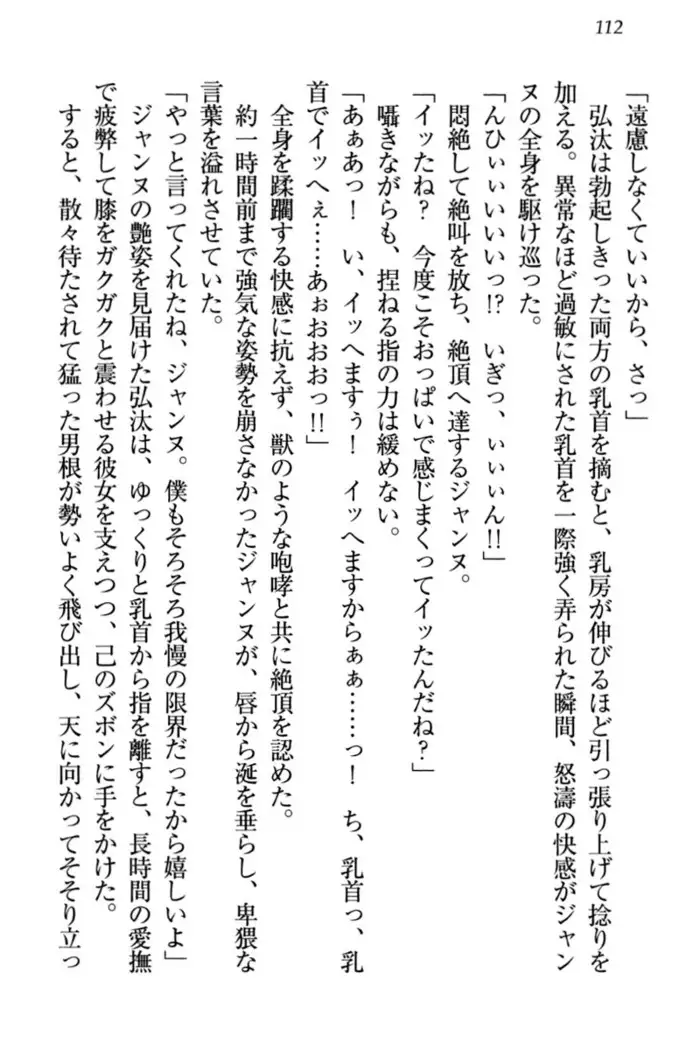 112
「遠慮しなくていいから、さっ」
　弘汰は勃起しきった両方の乳首を摘むと、乳房が伸びるほど引っ張り上げて捻りを
加える。異常なほど過敏にされた乳首を一際強く弄られた瞬間、怒濤の快感がジャン
ヌの全身を駆け巡った。
「んひぃぃいいいっ!?　いぎっ、ぃぃぃん!!」
　悶絶して絶叫を放ち、絶頂へ達するジャンヌ。
「イッたね？　今度こそおっぱいで感じまくってイッたんだね？」
　囁きながらも、捏ねる指の力は緩めない。
「あぁあっ！　い、イッへますぅ！　イッへますからぁぁ……っ！　ち、乳首っ、乳
首でイッへぇ……あぉおおおっ!!」
　全身を蹂躙する快感に抗えず、獣のような咆哮と共に絶頂を認めた。
　約一時間前まで強気な姿勢を崩さなかったジャンヌが、唇から涎を垂らし、卑猥な
言葉を溢れさせていた。
「やっと言ってくれたね、ジャンヌ。僕もそろそろ我慢の限界だったから嬉しいよ」
　ジャンヌの艶姿を見届けた弘汰は、ゆっくりと乳首から指を離すと、長時間の愛撫
で疲弊して膝をガクガクと震わせる彼女を支えつつ、己のズボンに手をかけた。
　すると、散々待たされて猛った男根が勢いよく飛び出し、天に向かってそそり立っ